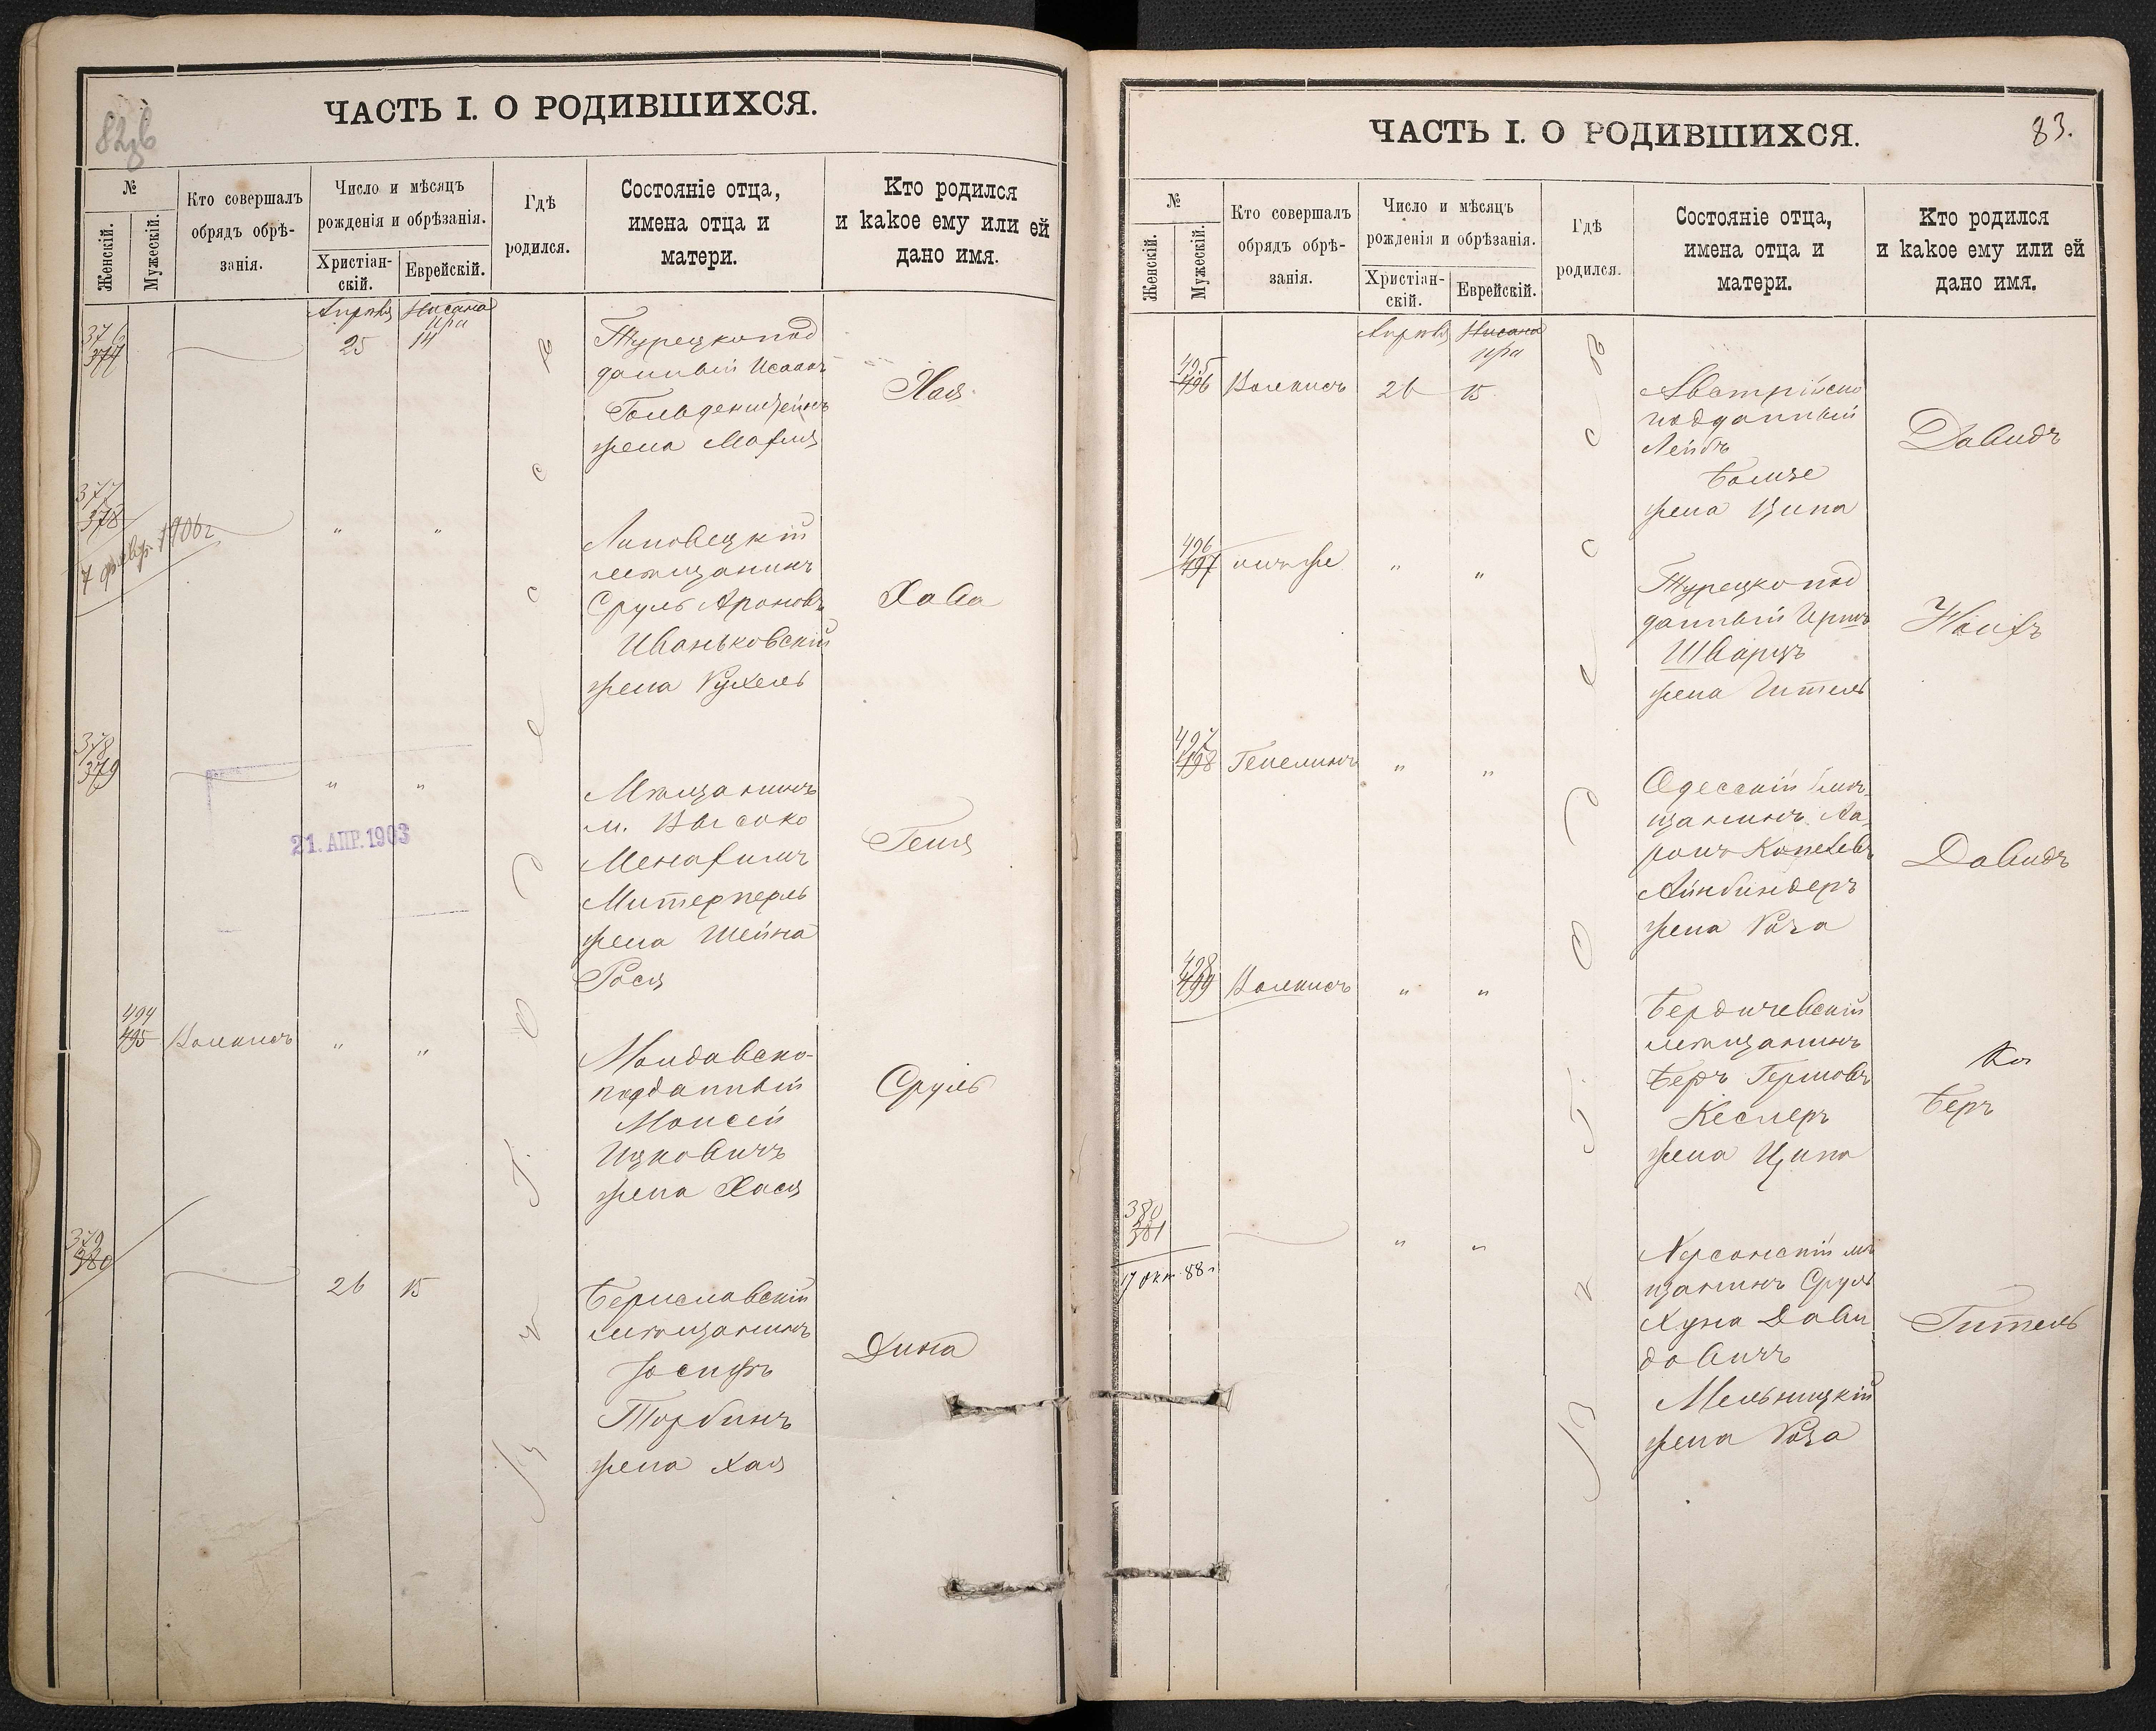 82об
ЧАСТЬ I. О РОДИВШИХСЯ.
№
Женскій.
Мужескій.
Кто совершалъ
обрядъ обрѣ-
занія.
Число и мѣсяцъ
рожденія и обрѣзанія.
Христіан-
скій.
Еврейскій.
Гдѣ
родился.
Состояніе отца,
имена отца и
матери.
Кто родился
и какое ему или ей
дано имя.
Апрѣля
Нисана
376
377
25
14
Турецкопод
данный Исаакъ
Гольденштейнъ
жена Маля
Хая
377
378
7 февр. 1906г
"
"
Липовецкій
мѣщанинъ
Сруль Ароновъ
Иваньковскій
жена Рухель
Хава
378
379
"
"
21. АПР. 1903
Мѣщанинъ
м. Высоко
Менахимъ
Митерперль
жена Шейна
Рося
Геня
494
495
"
"
Молдавско-
подданный
Моисей
Ицковичъ
жена Хася
Сруль
379
380
26
15
Бериславскій
мѣщанинъ
Іосифъ
Торбинъ
жена Хая
Дина
Въ г. Одессѣ
83.
ЧАСТЬ I. О РОДИВШИХСЯ.
№
Женскій.
Мужескій.
Кто совершалъ
обрядъ обрѣ-
занія.
Число и мѣсяцъ
рожденія и обрѣзанія.
Христіан-
скій.
Еврейскій.
Гдѣ
родился.
Состояніе отца,
имена отца и
матери.
Кто родился
и какое ему или ей
дано имя.
Апрѣля
Нисана
495
496
26
15
Австрійско
подданный
Лейбъ
жена Ципа
Давидъ
496
497
онъ же
"
"
Турецко под
данный Иршъ
Шварцъ
жена Гитель
497
498
"
"
Одесскій мѣ-
щанинъ Аа-
ронъ Копелевъ
Айнбиндеръ
жена Роза
Давидъ
498
499
"
"
Бердичевскій
мѣщанинъ
Беръ Гершовъ
Кеслеръ
жена Ципа
Беръ
380
381
17 окт. 88г
"
"
Херсонскій мѣ
щанинъ Сруль
Хуна Дави
довичъ
Мельницкій
жена Роза
Гитель
Въ г. Одессѣ